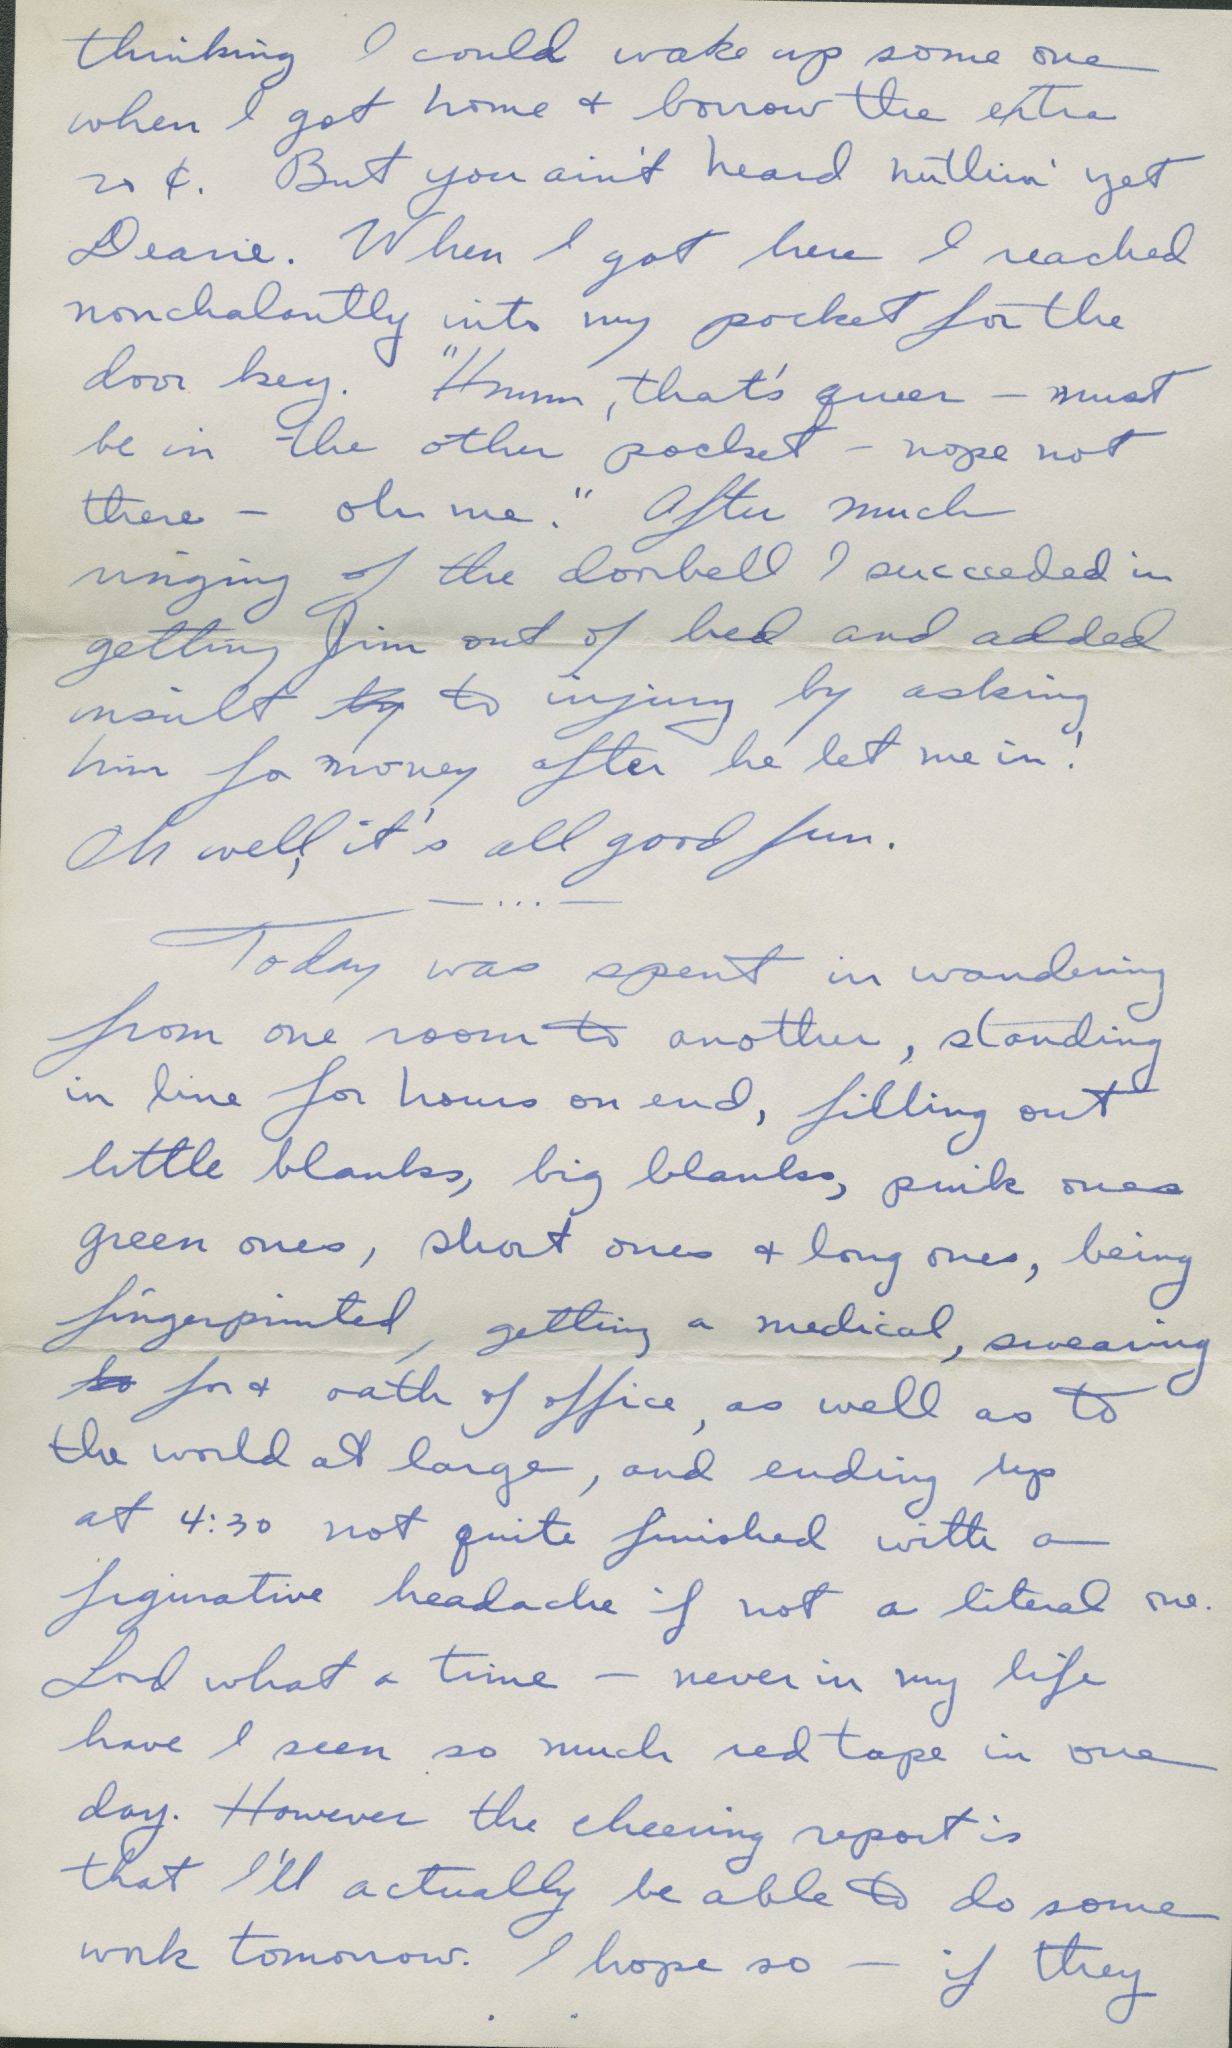 thinking I could wake up some one
when I got home & borrow the extra
20 ¢. But you ain't heard nuthin' yet
Dearie. When I got here I reached
nonchalantly into my pocket for the
door key. "Hmmm, that's queer — must
be in the other pocket — nope not
there — oh me." After much
ringing of the doorbell I succeeded in
getting Jim out of bed and added
insult by to injury by asking
him fo money after he let me in!
Oh well, it's all good fun.
— ... —
Today was spent in wandering
from one room to another, standing
in line for hours on end, filling out
little blanks, big blanks, pink ones
green ones, short ones & long ones, being
fingerprinted, getting a medical, swearing
to for & oath of office, as well as to
the world at large, and ending up
at 4:30 not quite finished with a
figurative headache if not a literal one.
Lord what a time — never in my life
have I seen so much red tape in one
day. However the cheering report is
that I'll actually be able to do some
work tomorrow. I hope so — if they